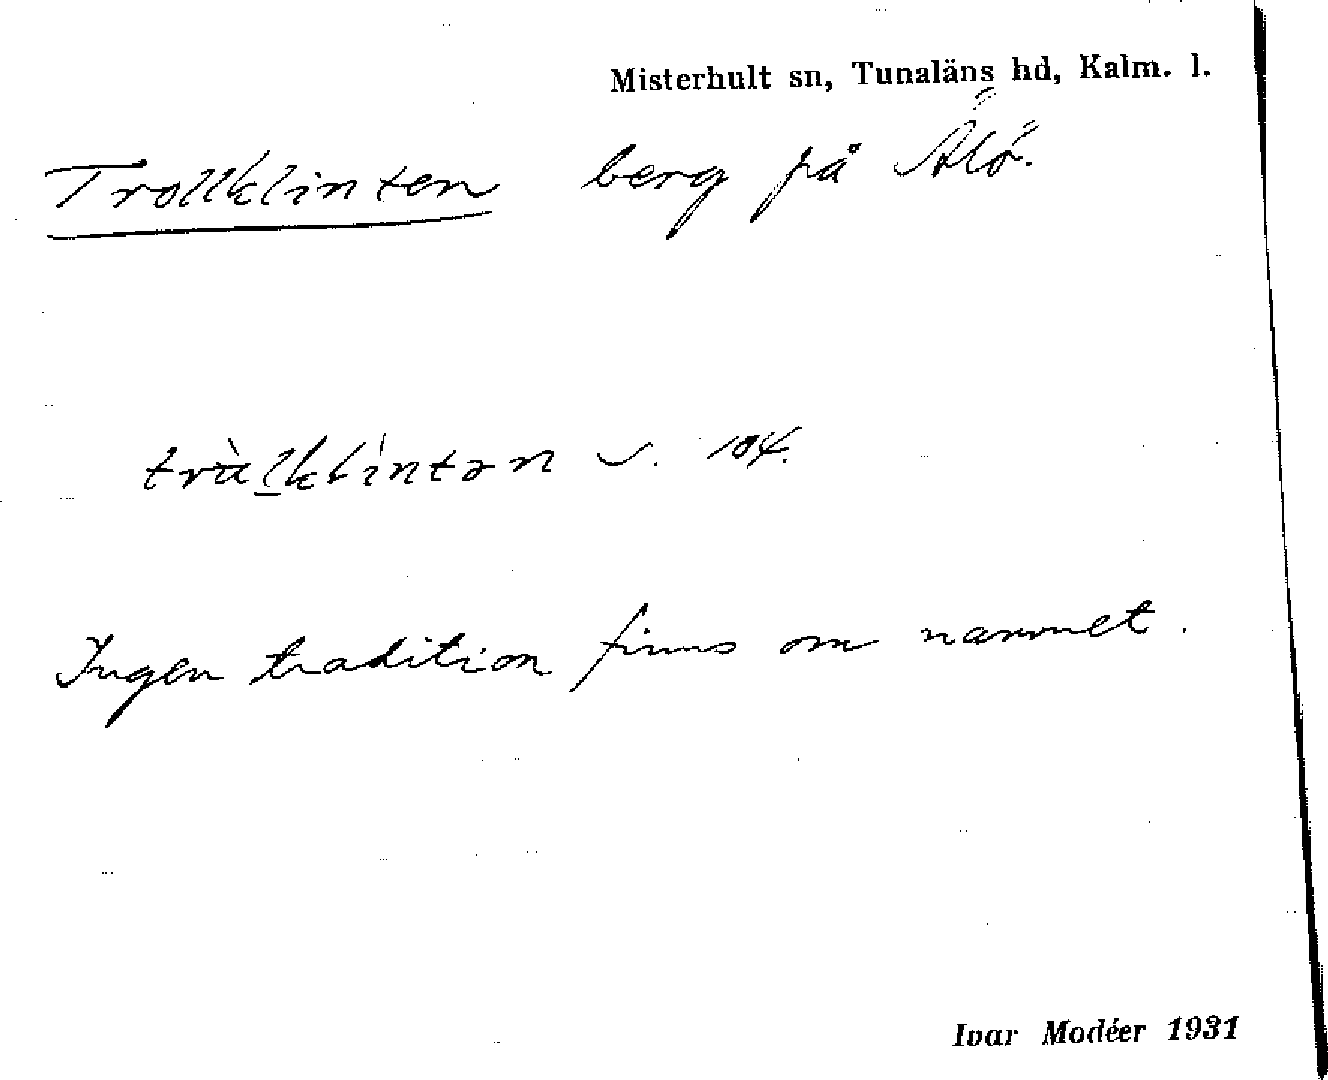 Misterhult sn, Tunaläns hd, Kalm. l.
Trollklinten berg på Älö.
104.
Ingen tradition finns om namnet.
Ivar Modéer 1931